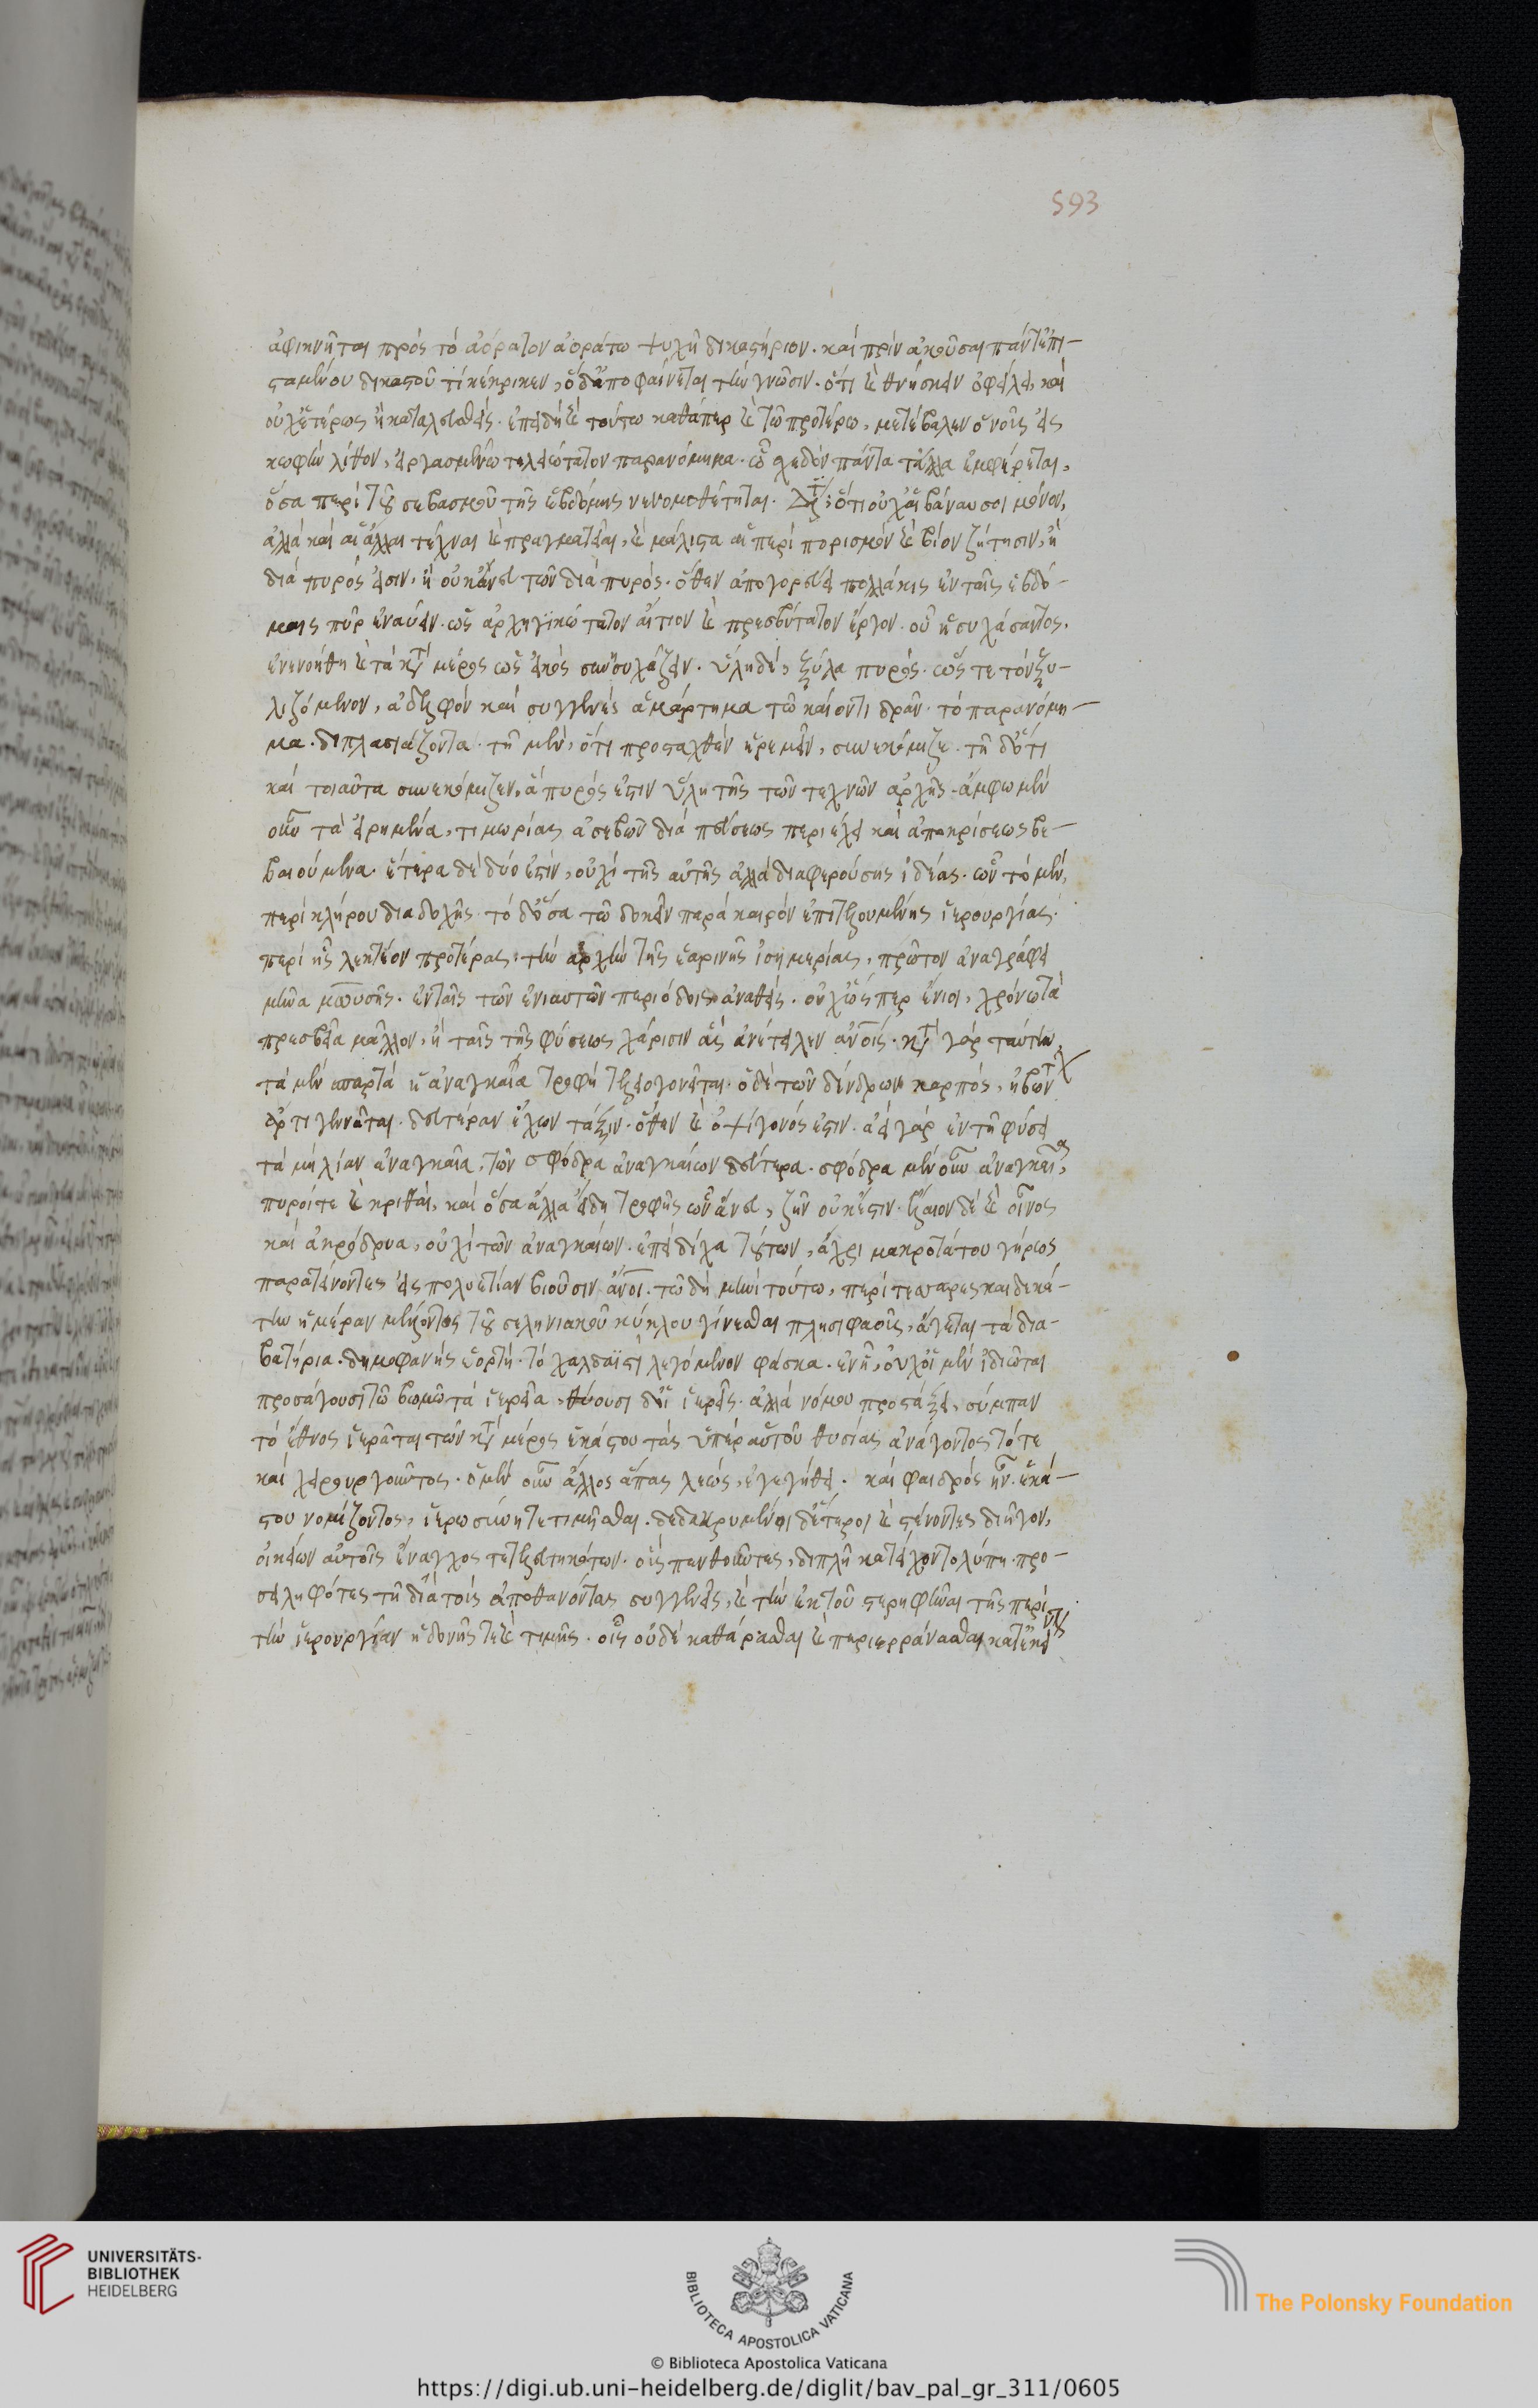 593
ἀφικνῆται πρὸς τὸ ἀόρατον ἀοράτω ψυχῆ δικαστήριον. καὶ πρὶν ἀκοῦσαι πάντ' ἐπι-
σταμένου δικαστοῦ τί κέκρικεν, ὁ δ' ἀποφαίνεται τὴν γνῶσιν. ὅτι καὶ θνήσκειν ὀφείλει, καὶ
οὐχ ἑτέρως ἢ καταλευσθείς. ἐπειδὴ καὶ τούτω καθάπερ καὶ τῶ προτέρω, μετέβαλεν ὁ νοῦς εἰς
κωφὴν λίθον, εἰργασμένω τελεώτατον παρανόμημα. ὧ σχεδὸν πάντα τἄλλα ἐμφέρεται,
ὅσα περὶ τοῦ σεβασμοῦ τῆς ἑβδόμης νενομοθέτηται. Διατί; ὅτι οὐχ αἱ βάναυσοι μόνον,
ἀλλὰ καὶ αἱ ἄλλαι τέχναι καὶ πραγματεῖαι, καὶ μάλιστα αἱ περὶ πορισμὸν καὶ βίου ζήτησιν, ἢ
διὰ πυρός εἰσιν, ἢ οὐκ ἄνευ τῶν διὰ πυρός. ὅθεν ἀπαγορεύει πολλάκις ἐν ταῖς ἑβδό-
μαις πῦρ ἐναύειν. ὡς ἀρχηγικώτατον αἴτιον καὶ πρεσβύτατον ἔργον. οὗ ἡσυχάσαντος,
ἐνενοήθη καὶ τὰ κατὰ μέρος ὡς εἰκὸς συνησυχάζειν. ὕλη δὲ, ξύλα πυρός. ὥς τε τὸν ξυ-
λιζόμενον, ἀδελφὸν καὶ συγγενὲς ἁμάρτημα τῶ καίοντι δρᾶν. τὸ παρανόμη-
μα. διπλασιάζοντα. τῆ μὲν, ὅτι προσταχθὲν ἠρεμεῖν, συνεκόμιζε. τῆ δ' ὅτι
καὶ τοιαῦτα συνεκόμιζεν, ἃ πυρός ἐστιν ὕλη τῆς τῶν τεχνῶν ἀρχῆς. ἄμφω μὲν
οὖν τὰ εἰρημένα, τιμωρίας ἀσεβῶν διὰ πεύσεως περιέχει καὶ ἀποκρίσεως βε-
βαιούμενα. ἕτερα δὲ δύο ἐστὶν, οὐχὶ τῆς αὐτῆς ἀλλὰ διαφερούσης ἰδέας. ὧν τὸ μὲν,
περὶ κλήρου διαδοχῆς. τὸ δ' ὅσα τῶ δοκεῖν παρὰ καιρὸν ἐπιτελουμένης ἱερουργίας.
περὶ ἧς λεκτέον προτέρας. τὴν ἀρχὴν τῆς ἐαρινῆς ἰσημερίας, πρῶτον ἀναγράφει
μῆνα μωυσῆς. ἐν ταῖς τῶν ἐνιαυτῶν περιόδοις ἀναθεὶς. οὐχ ὥσπερ ἔνιοι, χρόνω τὰ
πρεσβεῖα μᾶλλον, ἢ ταῖς τῆς φύσεως χάρισιν ἃς ἀνέτειλεν ἀνοις. κατὰ γὰρ ταύτην,
τὰ μὲν σπαρτὰ ἡ ἀναγκαία τροφὴ τελεογονεῖται. ὁ δὲ τῶν δένδρων καρπὸς, ἡβώντων
ἄρτι γεννᾶται. δευτέραν ἔχων τάξιν. ὅθεν καὶ ὀψίγονός ἐστιν. ἀεὶ γὰρ ἐν τῆ φύσει
τὰ μὴ λίαν ἀναγκαῖα, τῶν σφόδρα ἀναγκαίων δεύτερα. σφόδρα μὲν οὖν ἀναγκαῖα,
πυροί τε καὶ κριθαὶ, καὶ ὅσα ἄλλα εἴδη τροφῆς ὧν ἄνευ, ζῆν οὐκ ἔστιν. ἔλαιον δὲ καὶ οἶνος
καὶ ἀκρόδρυα, οὐχὶ τῶν ἀναγκαίων. ἐπεὶ δίχα τούτων, ἄχρι μακροτάτου γήρως
παρατείνοντες εἰς πολυετίαν βιοῦσιν ἄνοι. τῶ δὴ μηνὶ τούτω, περὶ τεσσαρεσκαιδεκά-
την ἡμέραν μέλλοντος τοῦ σεληνιακοῦ κύκλου γίνεσθαι πλησιφαοῦς, ἄγεται τὰ δια-
βατήρια. δημοφανὴς ἑορτή. τὸ χαλδαϊστὶ λεγόμενον φάσκα. ἐν ἧ, οὐχ οἱ μὲν ἰδιῶται
προσάγουσι τῶ βωμῶ τὰ ἱερεῖα, θύουσι δ' οἱ ἱερεῖς. ἀλλὰ νόμου προστάξει, σύμπαν
τὸ ἔθνος ἱερᾶται τῶν κατὰ μέρος ἑκάστου τὰς ὑπὲρ αὑτοῦ θυσίας ἀνάγοντος τότε
καὶ χειρουργοῦντος. ὁ μὲν οὖν ἄλλος ἅπας λεὼς, ἐγεγήθει. καὶ φαιδρὸς ἦν. ἑκά-
στου νομίζοντος, ἱερωσύνη τετιμῆσθαι. δεδακρυμένοι δ' ἕτεροι καὶ στένοντες διῆγον,
οἰκείων αὐτοῖς ἔναγχος τετελευτηκότων. οὓς πενθοῦντες, διπλῆ κατείχοντο λύπη. προ-
σειληφότες τῆ διὰ τοὺς ἀποθανόντας συγγενεῖς, καὶ τὴν ἐκ τοῦ στερηθῆναι τῆς περὶ
τὴν ἱερουργίαν ἡδονῆς τε καὶ τιμῆς. οἷς οὐδὲ καθάρασθαι καὶ περιρράνασθαι κατ' ἐκείνην
UNIVERSITÄTS-
BIBLIOTHEK
HEIDELBERG
BIBLIOTECA APOSTOLICA VATICANA
The Polonsky Foundation
© Biblioteca Apostolica Vaticana
https://digi.ub.uni-heidelberg.de/diglit/bav_pal_gr_311/0605